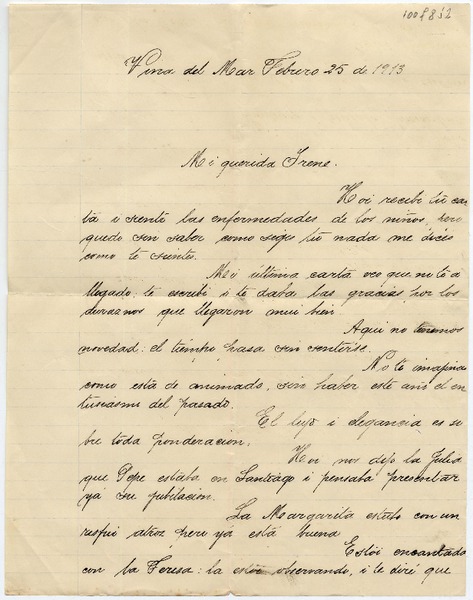 1008852
Viña del Mar Febrero 25 de 1913
Mi querida Irene.
Hoi recibi tú car
ta i siento las enfermedades de los niños, pero
quedo sin saber como sigas tú nada me dices
como te sientes.
Mi última carta creo que no te á
llegado: te escribi i te daba las gracias por los
duraznos que llegaron mui bien.
Aqui no tenemos
novedad: el tiempo pasa sin sentirse.
No te imajinas
como está de animado, sin haber este año el en
tusiasmo del pasado.
El lujo i elegancia es so
bre toda ponderación.
Hoi nos dijo la Julia
que Pepe estaba en Santiago i pensaba presentar
ya su jubilación.
La Margarita estabo con un
resfrió atroz pero ya está buena
Estói encantada
con la Teresa: la estói observando, i te diré que